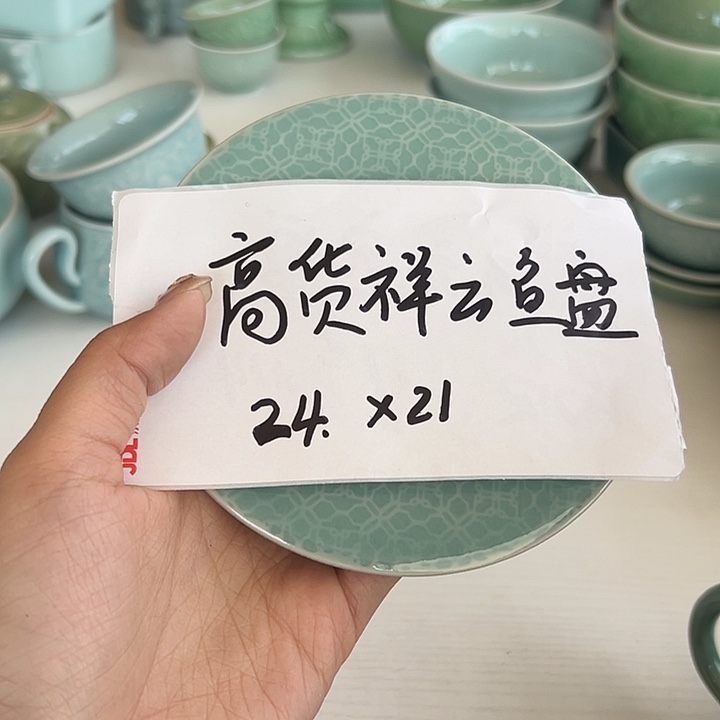 高货祥云鱼盘
24. ×21